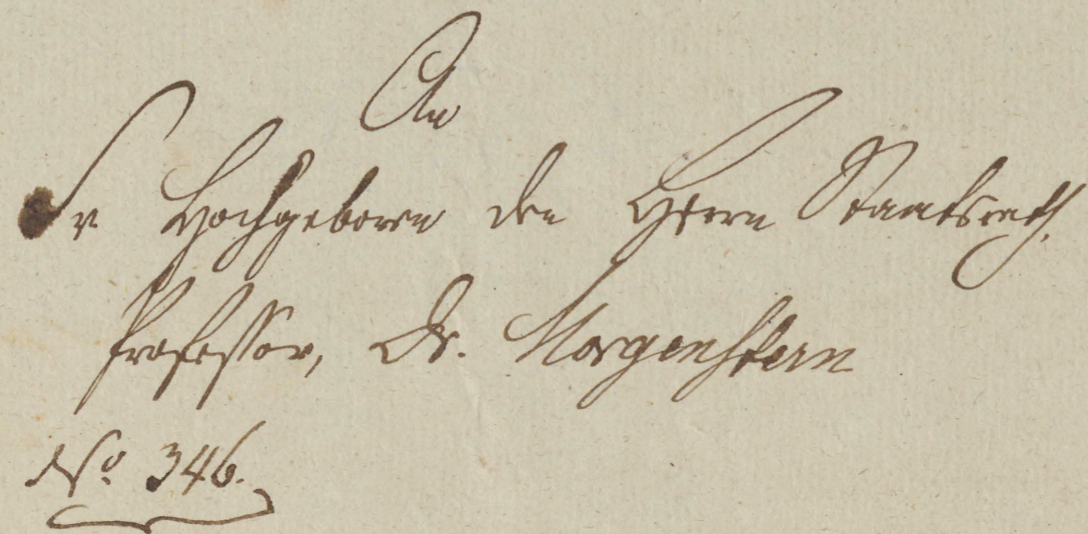 An
Sr Hochgeboren den Herrn Staatsrath,
Professor, Dr. Morgenstern
No. 346.